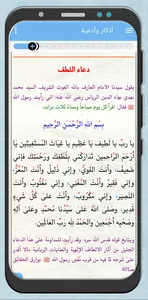 أذكار وأدعية
دعاء اللطف
يقول سيدنا الإمام العارف بالله الغوث الشريف السيد محمد
مهدي بهاء الدين الرواس رضي الله عنه: إني رأيت رسول الله
ﷺ فقال: اقرأ كل يوم صباحاً ومساءً ثلاث مرات:
بِسْمِ اللَّهِ الرَّحْمَنِ الرَّحِيمِ
يا رب يا لطيف يا عظيم يا غياث المستغيثين يا
أرحم الراحمين تداركني بلطفك ورحمتك فإني
ضعيف، وأنت القوي، وإني ذليل وأنت المعز،
وإني فقير، وأنت الغني، وإني مكروب، وأنت
مفرج كل كرب، وإني مغلوب وأنت على كل شيء
قدير، وصلى الله على سيدنا محمد وعلى آله
وصحبه أجمعين والحمد لله رب العالمين.